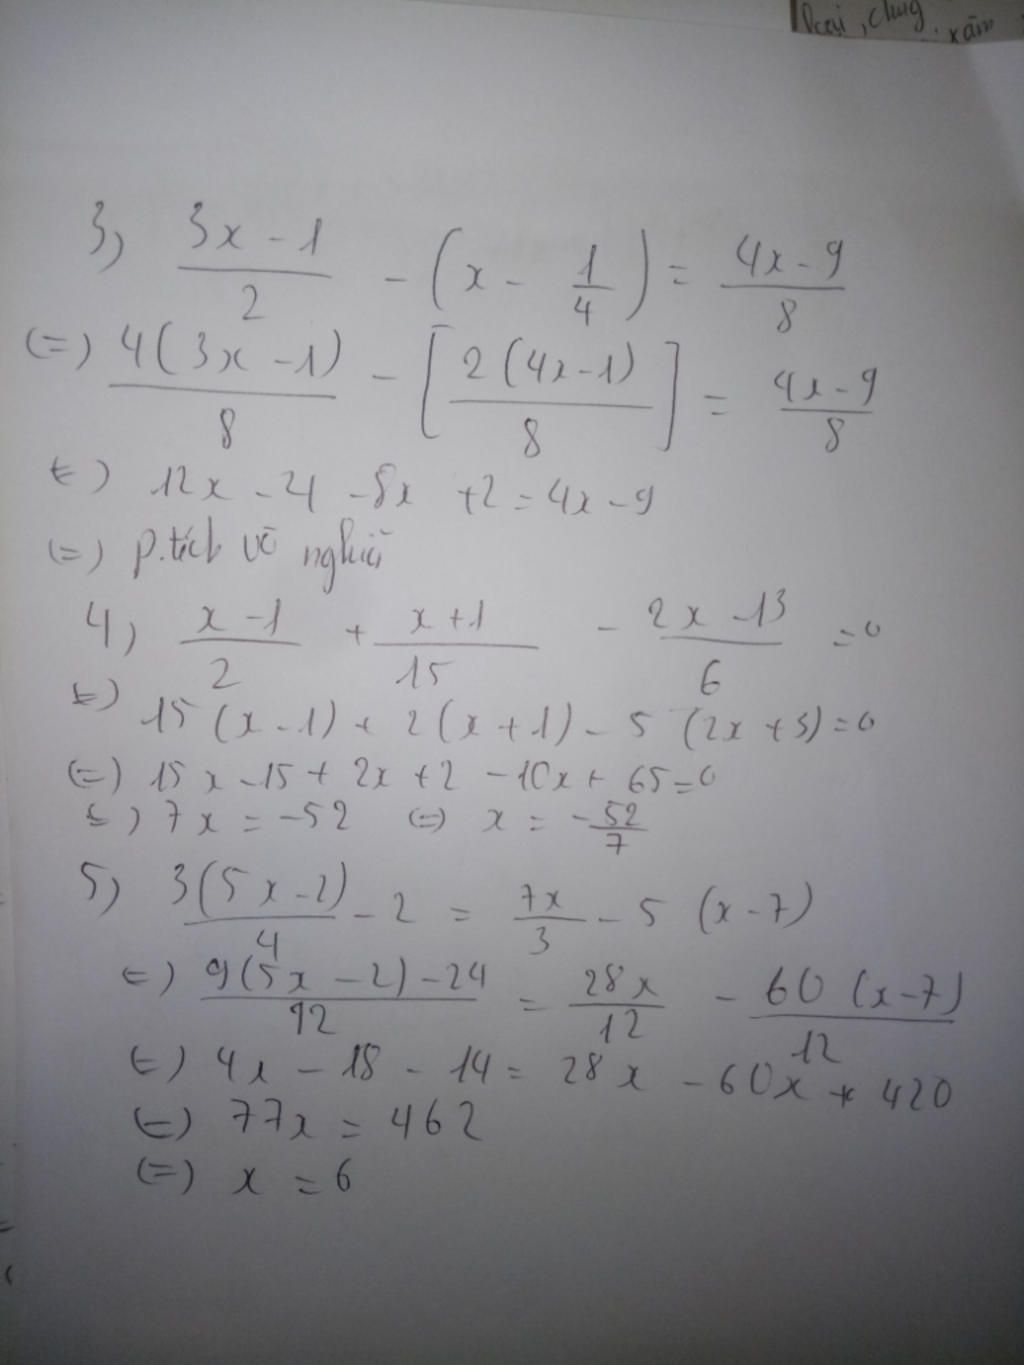 Dcại, chug
xăm
3) \frac{3x-1}{2} - (x - \frac{1}{4}) = \frac{4x-9}{8}
(=) \frac{4(3x-1)}{8} - [\frac{2(4x-1)}{8}] = \frac{4x-9}{8}
(=) 12x - 4 - 8x + 2 = 4x - 9
(=) p.tích vô nghiệ
4) \frac{x-1}{2} + \frac{x+1}{15} - \frac{2x-13}{6} = 0
(=) 15(x-1) + 2(x+1) - 5(2x+3) = 0
(=) 15x - 15 + 2x + 2 - 10x + 65 = 0
(=) 7x = -52 (=) x = -\frac{52}{7}
5) \frac{3(5x-2)}{4} - 2 = \frac{7x}{3} - 5(x-7)
(=) \frac{9(5x-2)-24}{12} = \frac{28x}{12} - \frac{60(x-7)}{12}
(=) 4x - 18 - 14 = 28x - 60x + 420
(=) 77x = 462
(=) x = 6